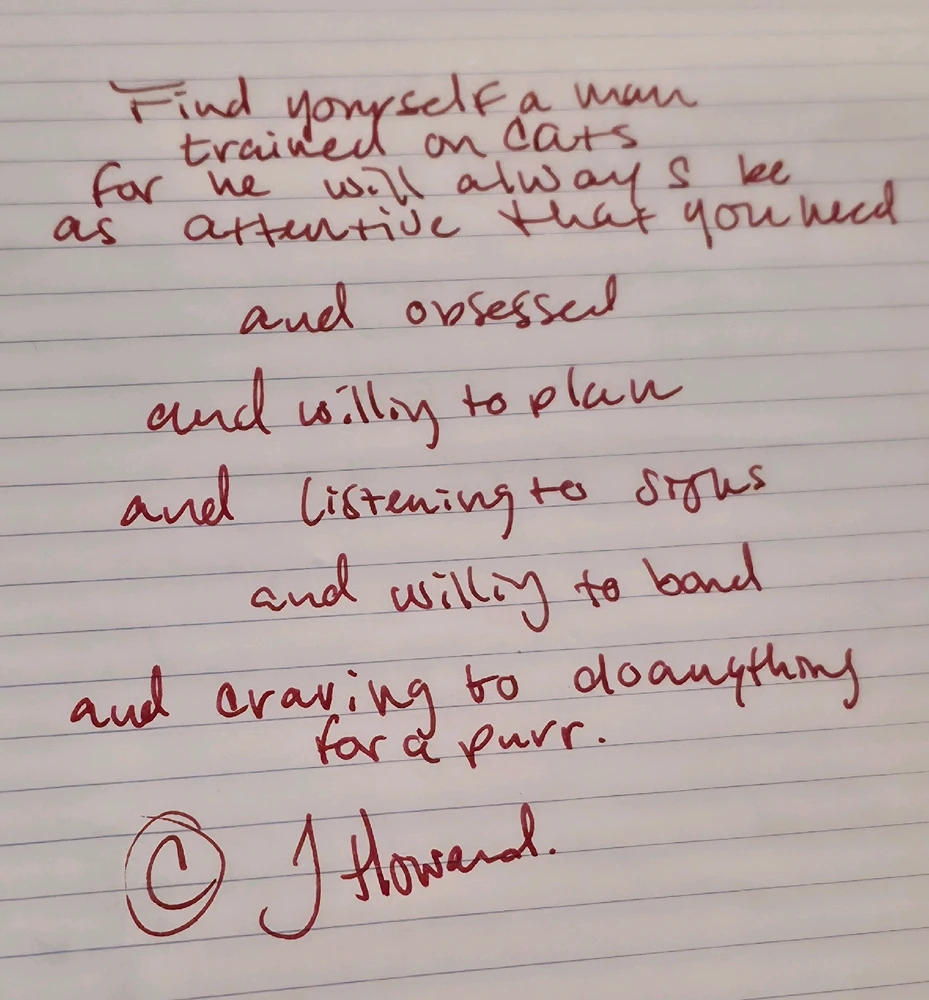 Find yourself a man
trained on cats
for he will always be
as attentive that you need
and obsessed
and willing to plan
and listening to signs
and willing to bond
and craving to do anything
for a purr.
© J Howard.